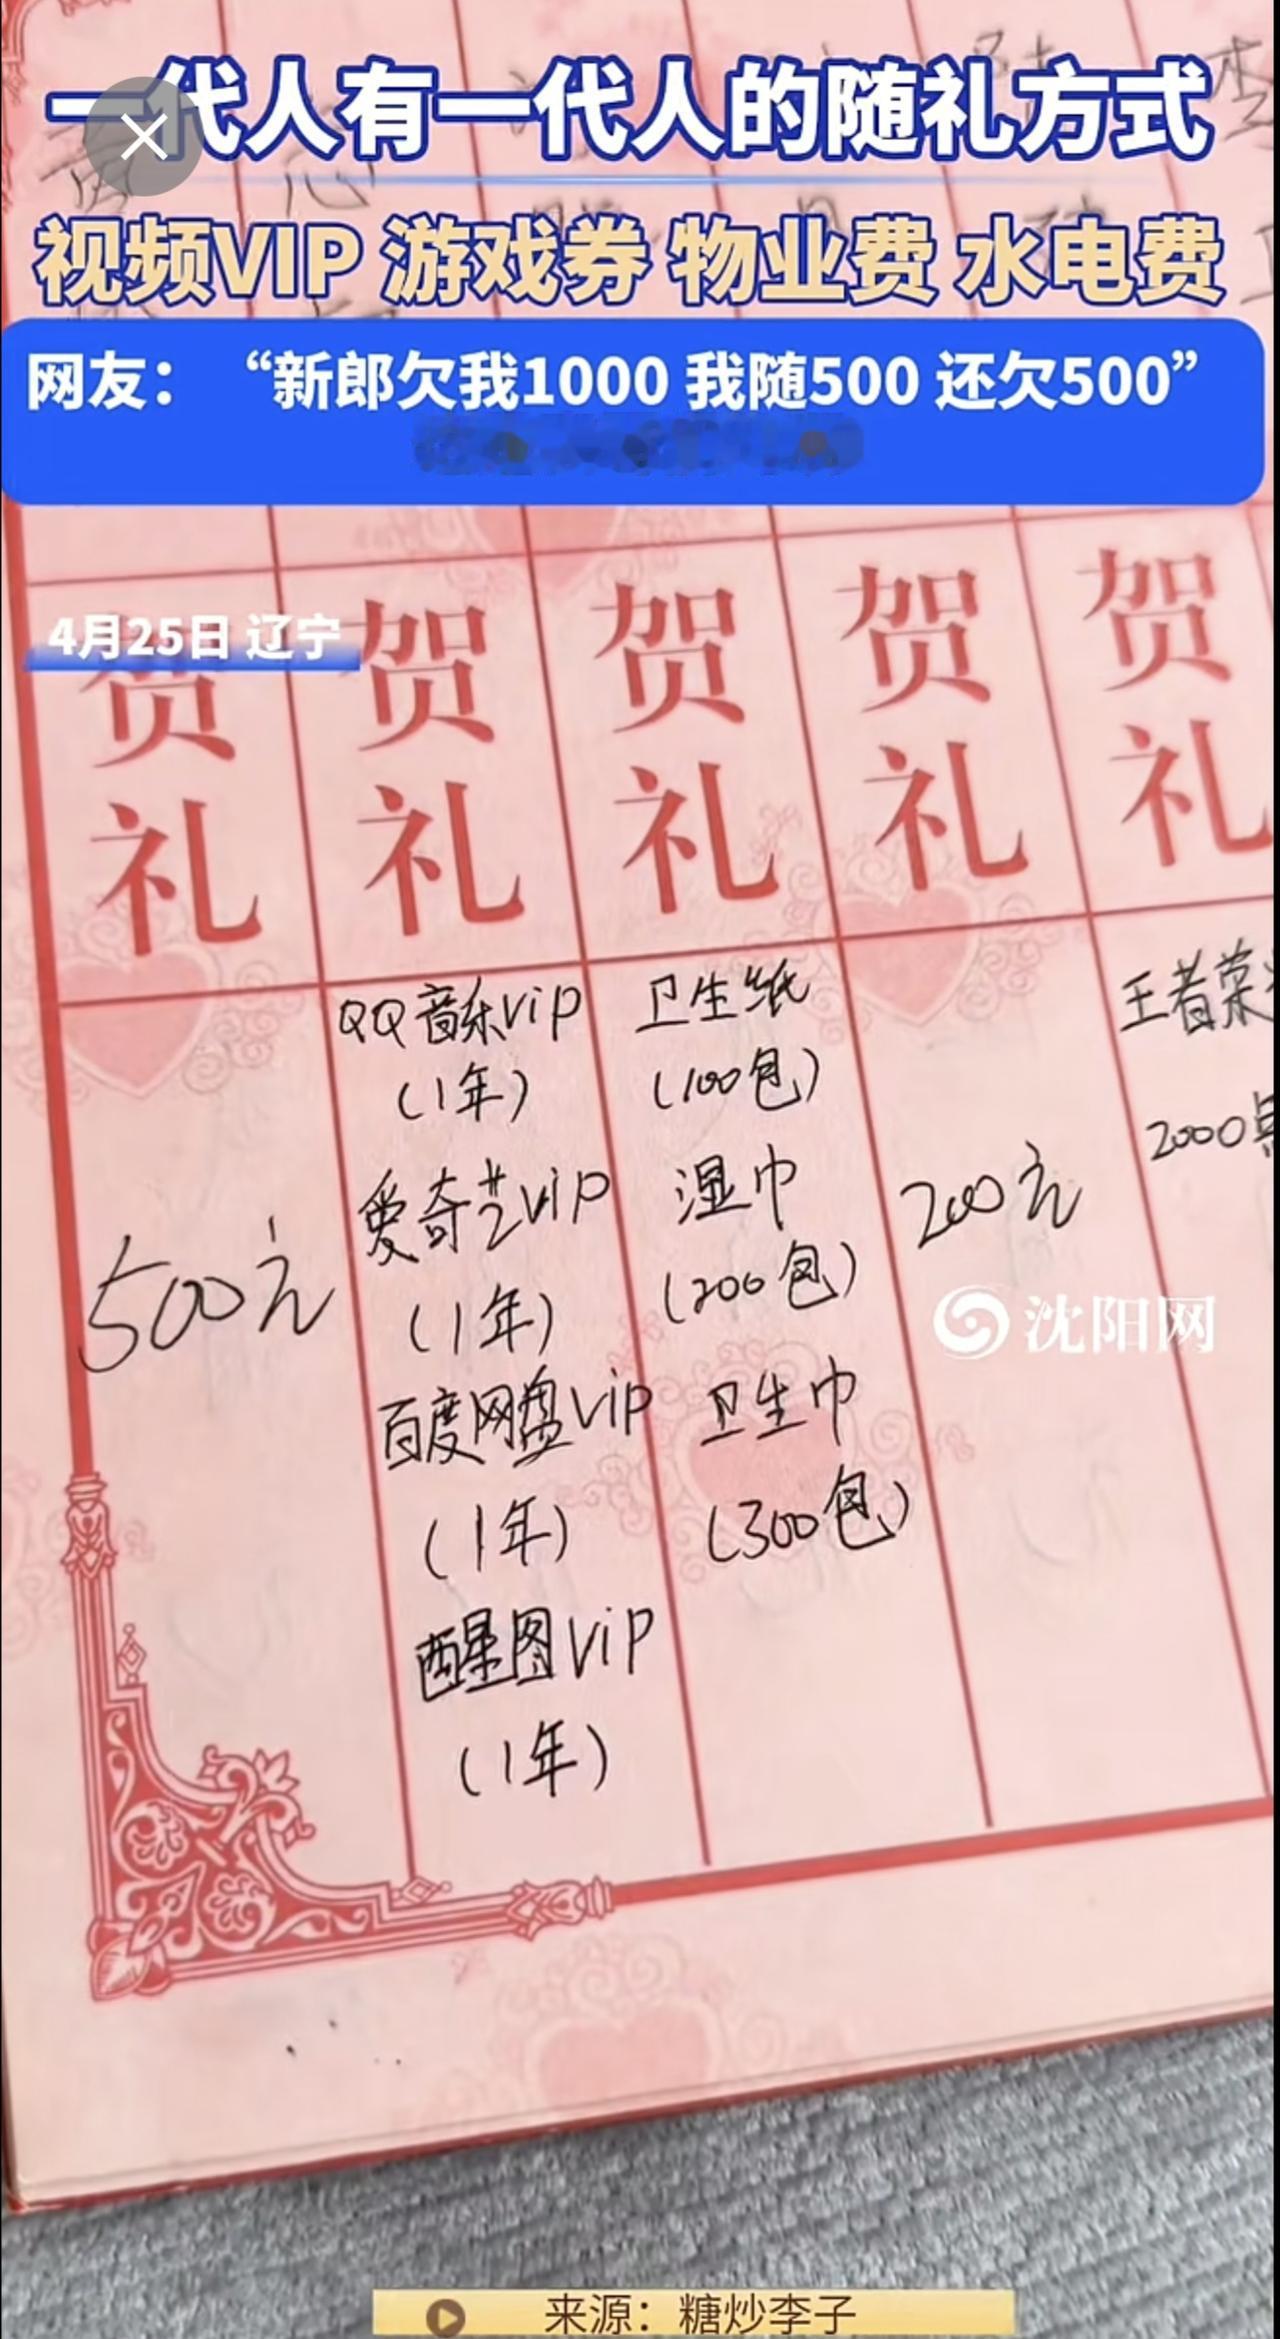 一代人有一代人的随礼方式
视频VIP 游戏券 物业费 水电费
网友：“新郎欠我1000 我随500 还欠500”
4月25日 辽宁
贺礼
贺礼
贺礼
贺礼
贺礼
500元
QQ音乐vip
(1年)
爱奇艺vip
(1年)
百度网盘vip
(1年)
醒图vip
(1年)
卫生纸
(100包)
湿巾
(200包)
卫生巾
(300包)
200元
王者荣
2000
沈阳网
来源：糖炒李子